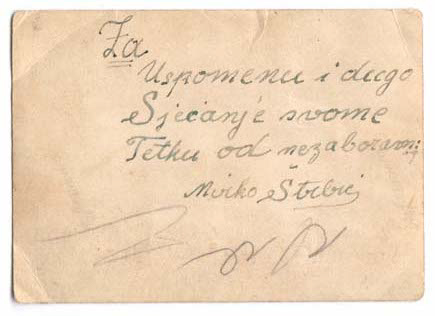 Za
Uspomenu i dugo
Sjećanje svome
Tetku od nezaboravni
Mirko Štrbić